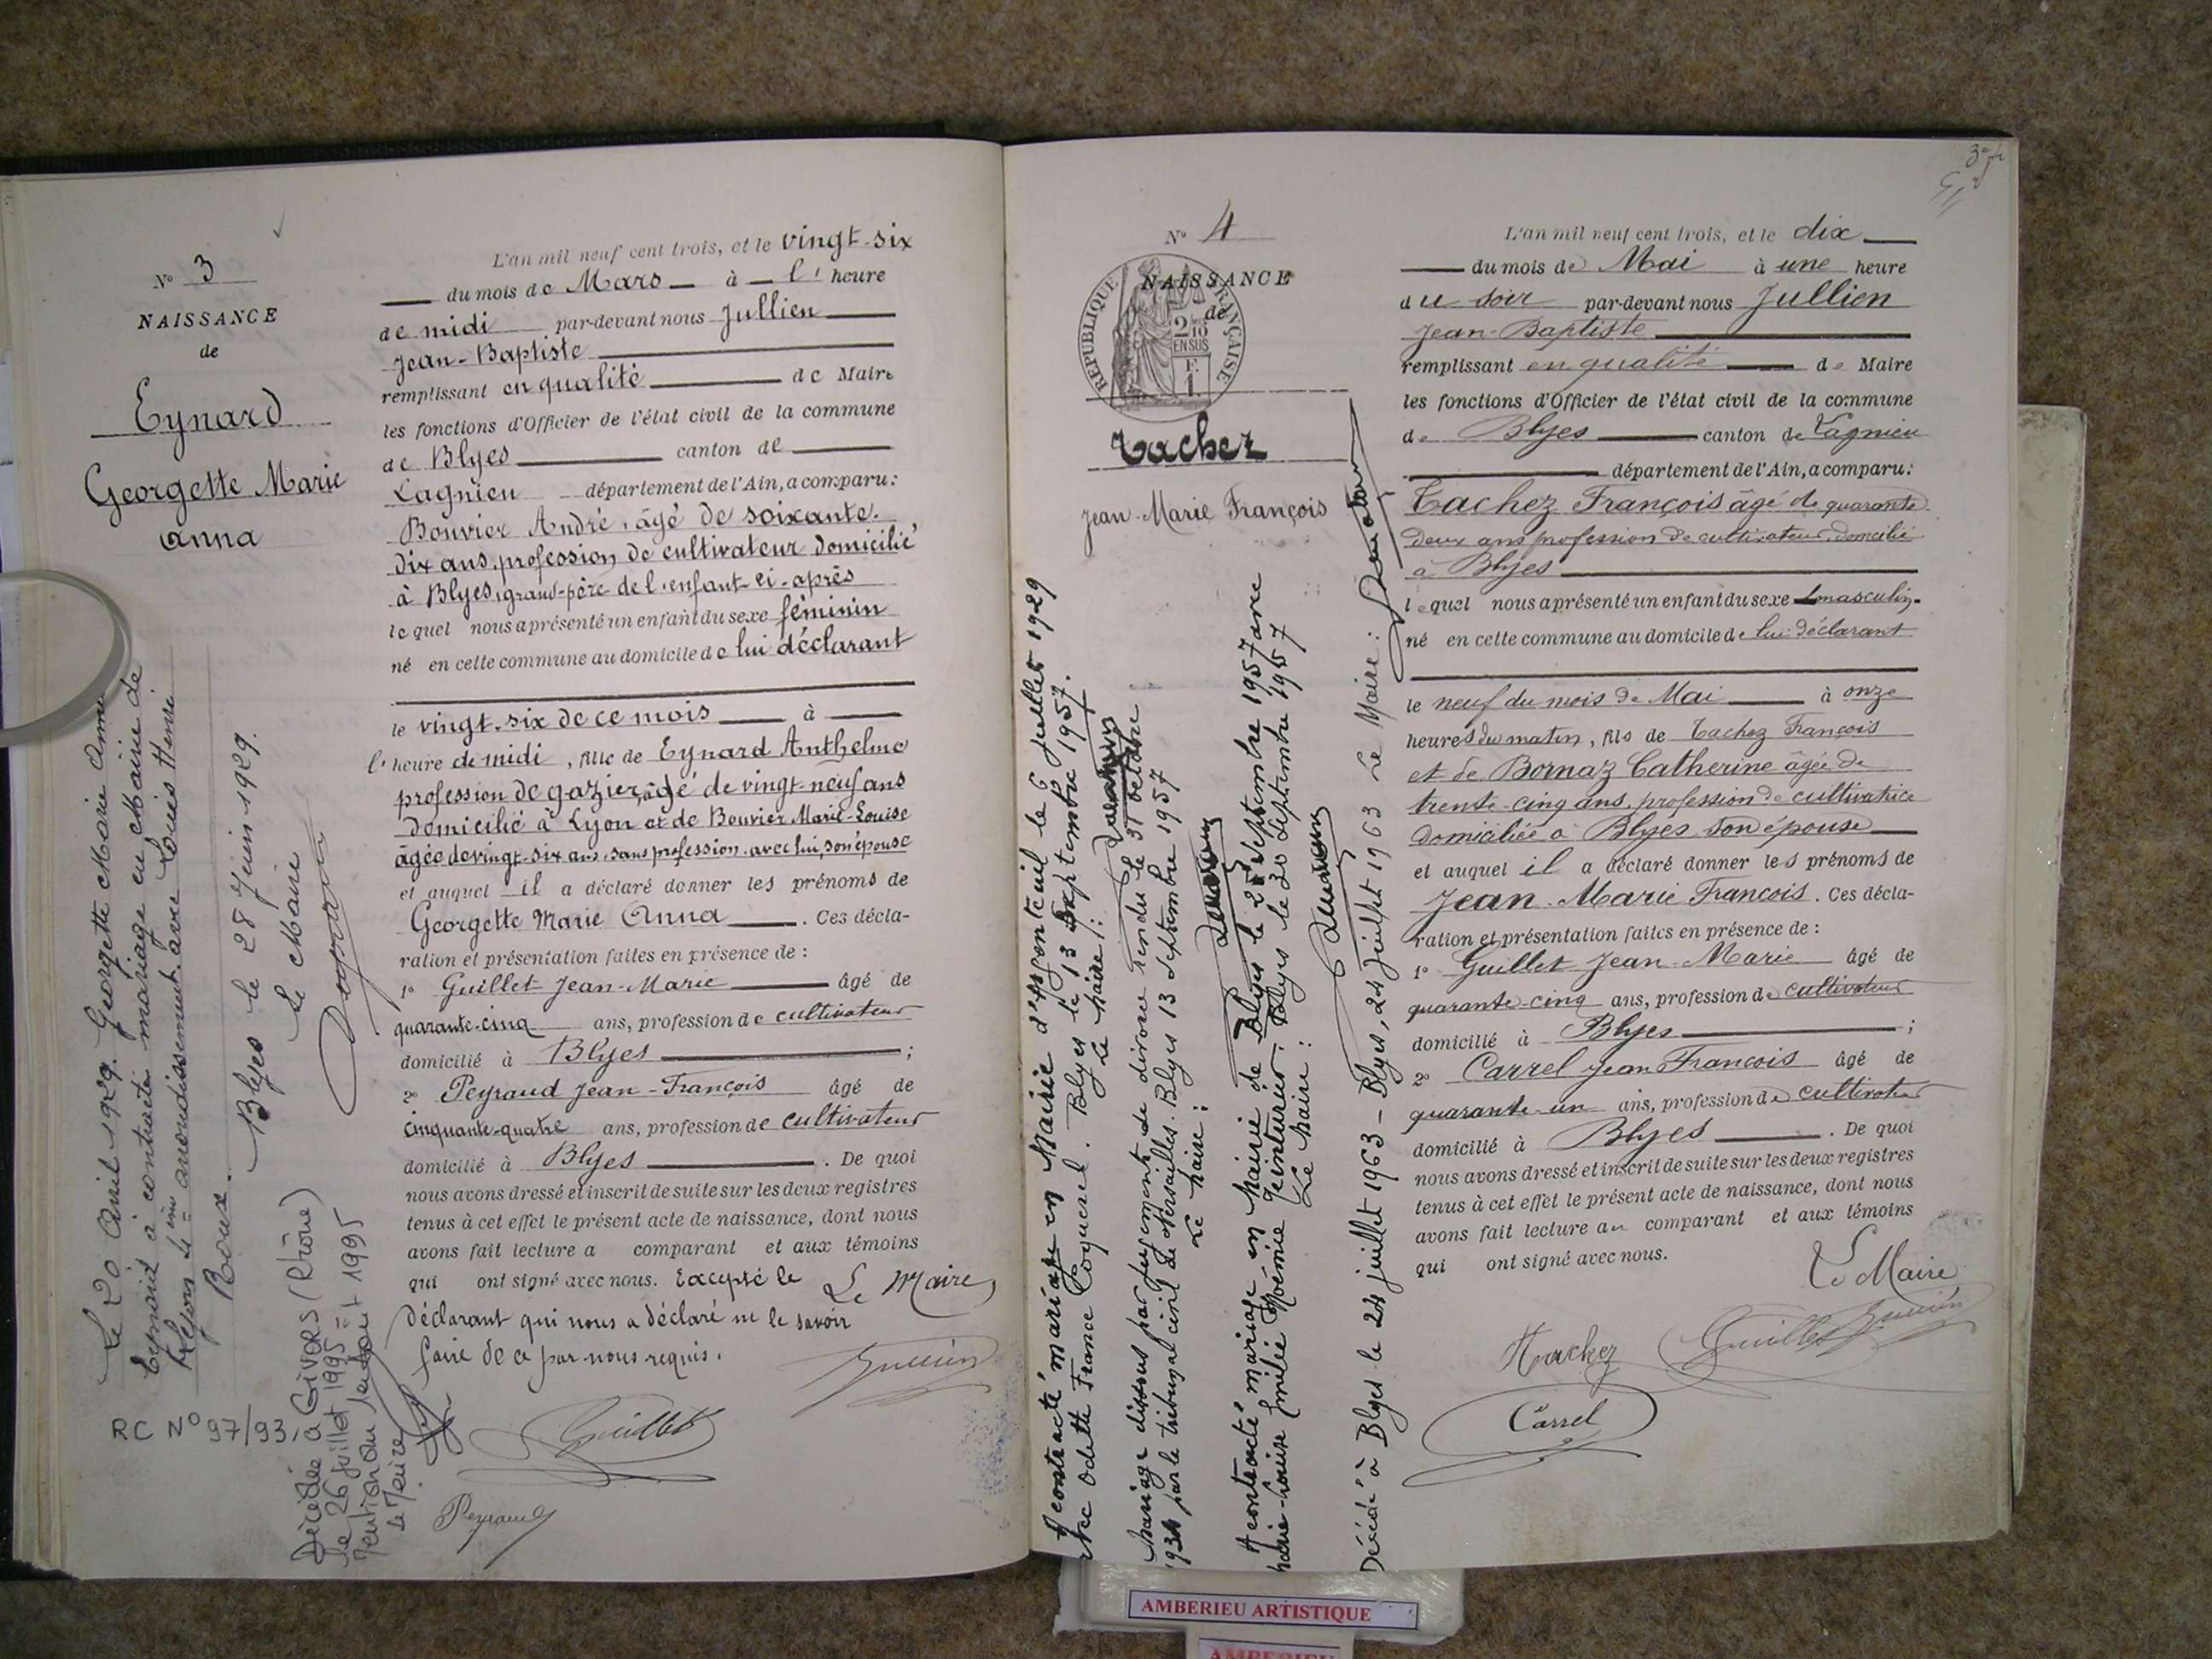 N° 3
NAISSANCE
de
Eynard
Georgette Marie
Anna
Le 20 Avril 1929. Georgette Marie Anna
Eynard a contracté mariage en Mairie de
Lyon 4ème arrondissement avec Louis Henri
Roux.
Blyes le 28 Juin 1929.
Le Maire
RC N° 97/93
Décédée à GIVORS (Rhône)
le 26 juillet 1995 =
1995
le Maire
L'an mil neuf cent trois, et le vingt-six
du mois de Mars à l' heure
de midi par-devant nous Jullien
Jean-Baptiste
remplissant en qualité de Maire
les fonctions d'Officier de l'état civil de la commune
de Blyes canton de
Lagnieu département de l'Ain, a comparu:
Bouvier André, âgé de soixante-
dix ans, profession de cultivateur domicilié
à Blyes, grand-père de l'enfant ci-après
lequel nous a présenté un enfant du sexe féminin
né en cette commune au domicile de lui déclarant
le vingt-six de ce mois à
l'heure de midi, fille de Eynard Anthelme
profession de gazier, âgé de vingt neuf ans
domicilié à Lyon et de Bouvier Marie-Louise
âgée de vingt-six ans, sans profession avec lui, son épouse
et auquel il a déclaré donner les prénoms de
Georgette Marie Anna. Ces décla-
ration et présentation faites en présence de :
1° Guillet Jean-Marie âgé de
quarante-cinq ans, profession de cultivateur
domicilié à Blyes ;
2° Peyraud Jean-François âgé de
cinquante-quatre ans, profession de cultivateur
domicilié à Blyes. De quoi
nous avons dressé et inscrit de suite sur les deux registres
tenus à cet effet le présent acte de naissance, dont nous
avons fait lecture a comparant et aux témoins
qui ont signé avec nous. Excepté le Le Maire,
déclarant qui nous a déclaré ne le savoir
faire de ce par nous requis.
Jullien
Guillet
Peyraud
N° 4
NAISSANCE
de
RÉPUBLIQUE FRANÇAISE
2/10
EN SUS
F.
1.
Tachez
Jean-Marie François
A contracté mariage en Mairie d'Argenteuil le 6 juillet 1929
avec Odette France Coquerel. Blyes le 13 Septembre 1957.
Le Maire :
Mariage dissous par jugement de divorce rendu le 31 octobre
1934 par le tribunal civil de Versailles. Blyes 13 septembre 1957
Le Maire :
A contracté mariage en Mairie de Blyes le 28 Septembre 1957 avec
Marie-Louise Emilie Noémie Teinturier. Blyes le 30 septembre 1957
Le Maire :
Décédé à Blyes le 24 juillet 1963 - Blyes, 24 Juillet 1963 Le Maire :
L'an mil neuf cent trois, et le dix
du mois de Mai à une heure
du soir par-devant nous Jullien
Jean-Baptiste
remplissant en qualité de Maire
les fonctions d'Officier de l'état civil de la commune
de Blyes canton de Lagnieu
département de l'Ain, a comparu:
Tachez François âgé de quarante
deux ans profession de cultivateur, domicilié
à Blyes
lequel nous a présenté un enfant du sexe masculin
né en cette commune au domicile de lui déclarant
le neuf du mois de Mai à onze
heures du matin, fils de Tachez François
et de Bornaz Catherine âgée de
trente-cinq ans, profession de cultivatrice
domiciliée à Blyes son épouse
et auquel il a déclaré donner les prénoms de
Jean-Marie François. Ces décla-
ration et présentation faites en présence de :
1° Guillet Jean-Marie âgé de
quarante-cinq ans, profession de cultivateur
domicilié à Blyes ;
2° Carrel Jean François âgé de
quarante-un ans, profession de cultivateur
domicilié à Blyes. De quoi
nous avons dressé et inscrit de suite sur les deux registres
tenus à cet effet le présent acte de naissance, dont nous
avons fait lecture au comparant et aux témoins
qui ont signé avec nous.
Le Maire
Tachez Guillet Jullien
Carrel
AMBERIEU ARTISTIQUE
AMBERIEU